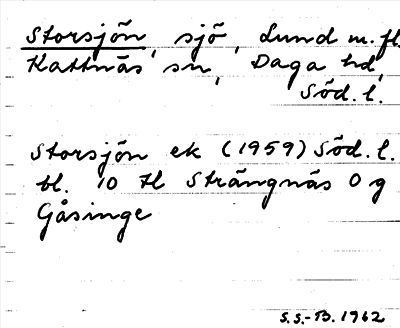 Storsjön, sjö, Lund m. fl.
Kattnäs sn, Daga hd,
Söd. l.
Storsjön ek (1959) Söd. l.
bl. 10 tl Strängnäs O g
Gåsinge
S.S.-B. 1962